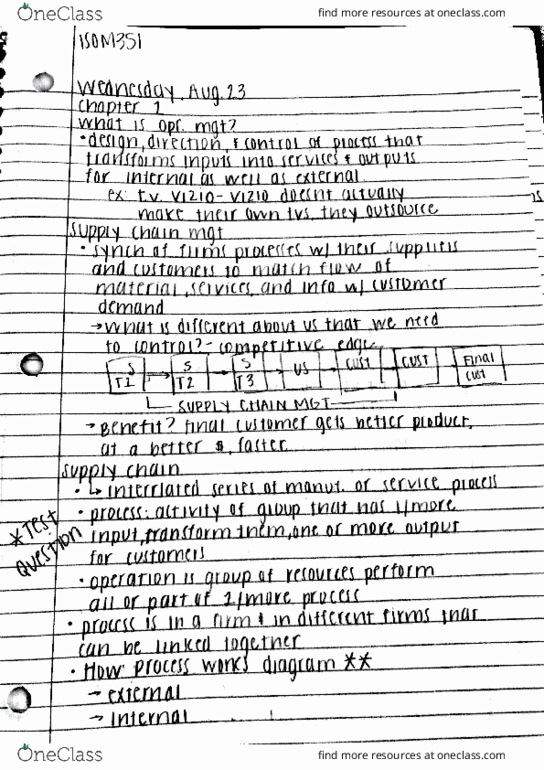 OneClass
find more resources at oneclass.com
ISOM351
Wednesday, Aug. 23
Chapter 1
What is opr. mgt?
• design, direction, & control of process that
transforms inputs into services & outputs
for internal as well as external
ex: t.v. VIZIO - VIZIO doesnt actually
make their own tvs, they outsource
Supply chain mgt
• synch of firms processes w/ their suppliers
and customers to match flow of
material, services, and info w/ customer
demand
→ What is different about us that we need
to control? - competitive edge
S T1 → S T2 → S T3 → US → CUST → CUST → Final CUST
SUPPLY CHAIN MGT
→ Benefit? Final customer gets better product,
at a better $, faster
Supply chain
• ↳ interrlated series of manuf. or service process
• process: activity of group that has 1/more
*Test Question
input, transform them, one or more output
for customers
• operation is group of resources perform
all or part of 1/more process
• process is in a firm & in different firms that
can be linked together
• How process works diagram **
→ external
→ internal
OneClass
find more resources at oneclass.com